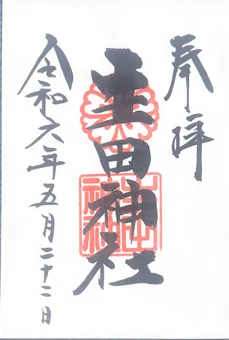 奉拝
生田神社
令和六年五月二十二日